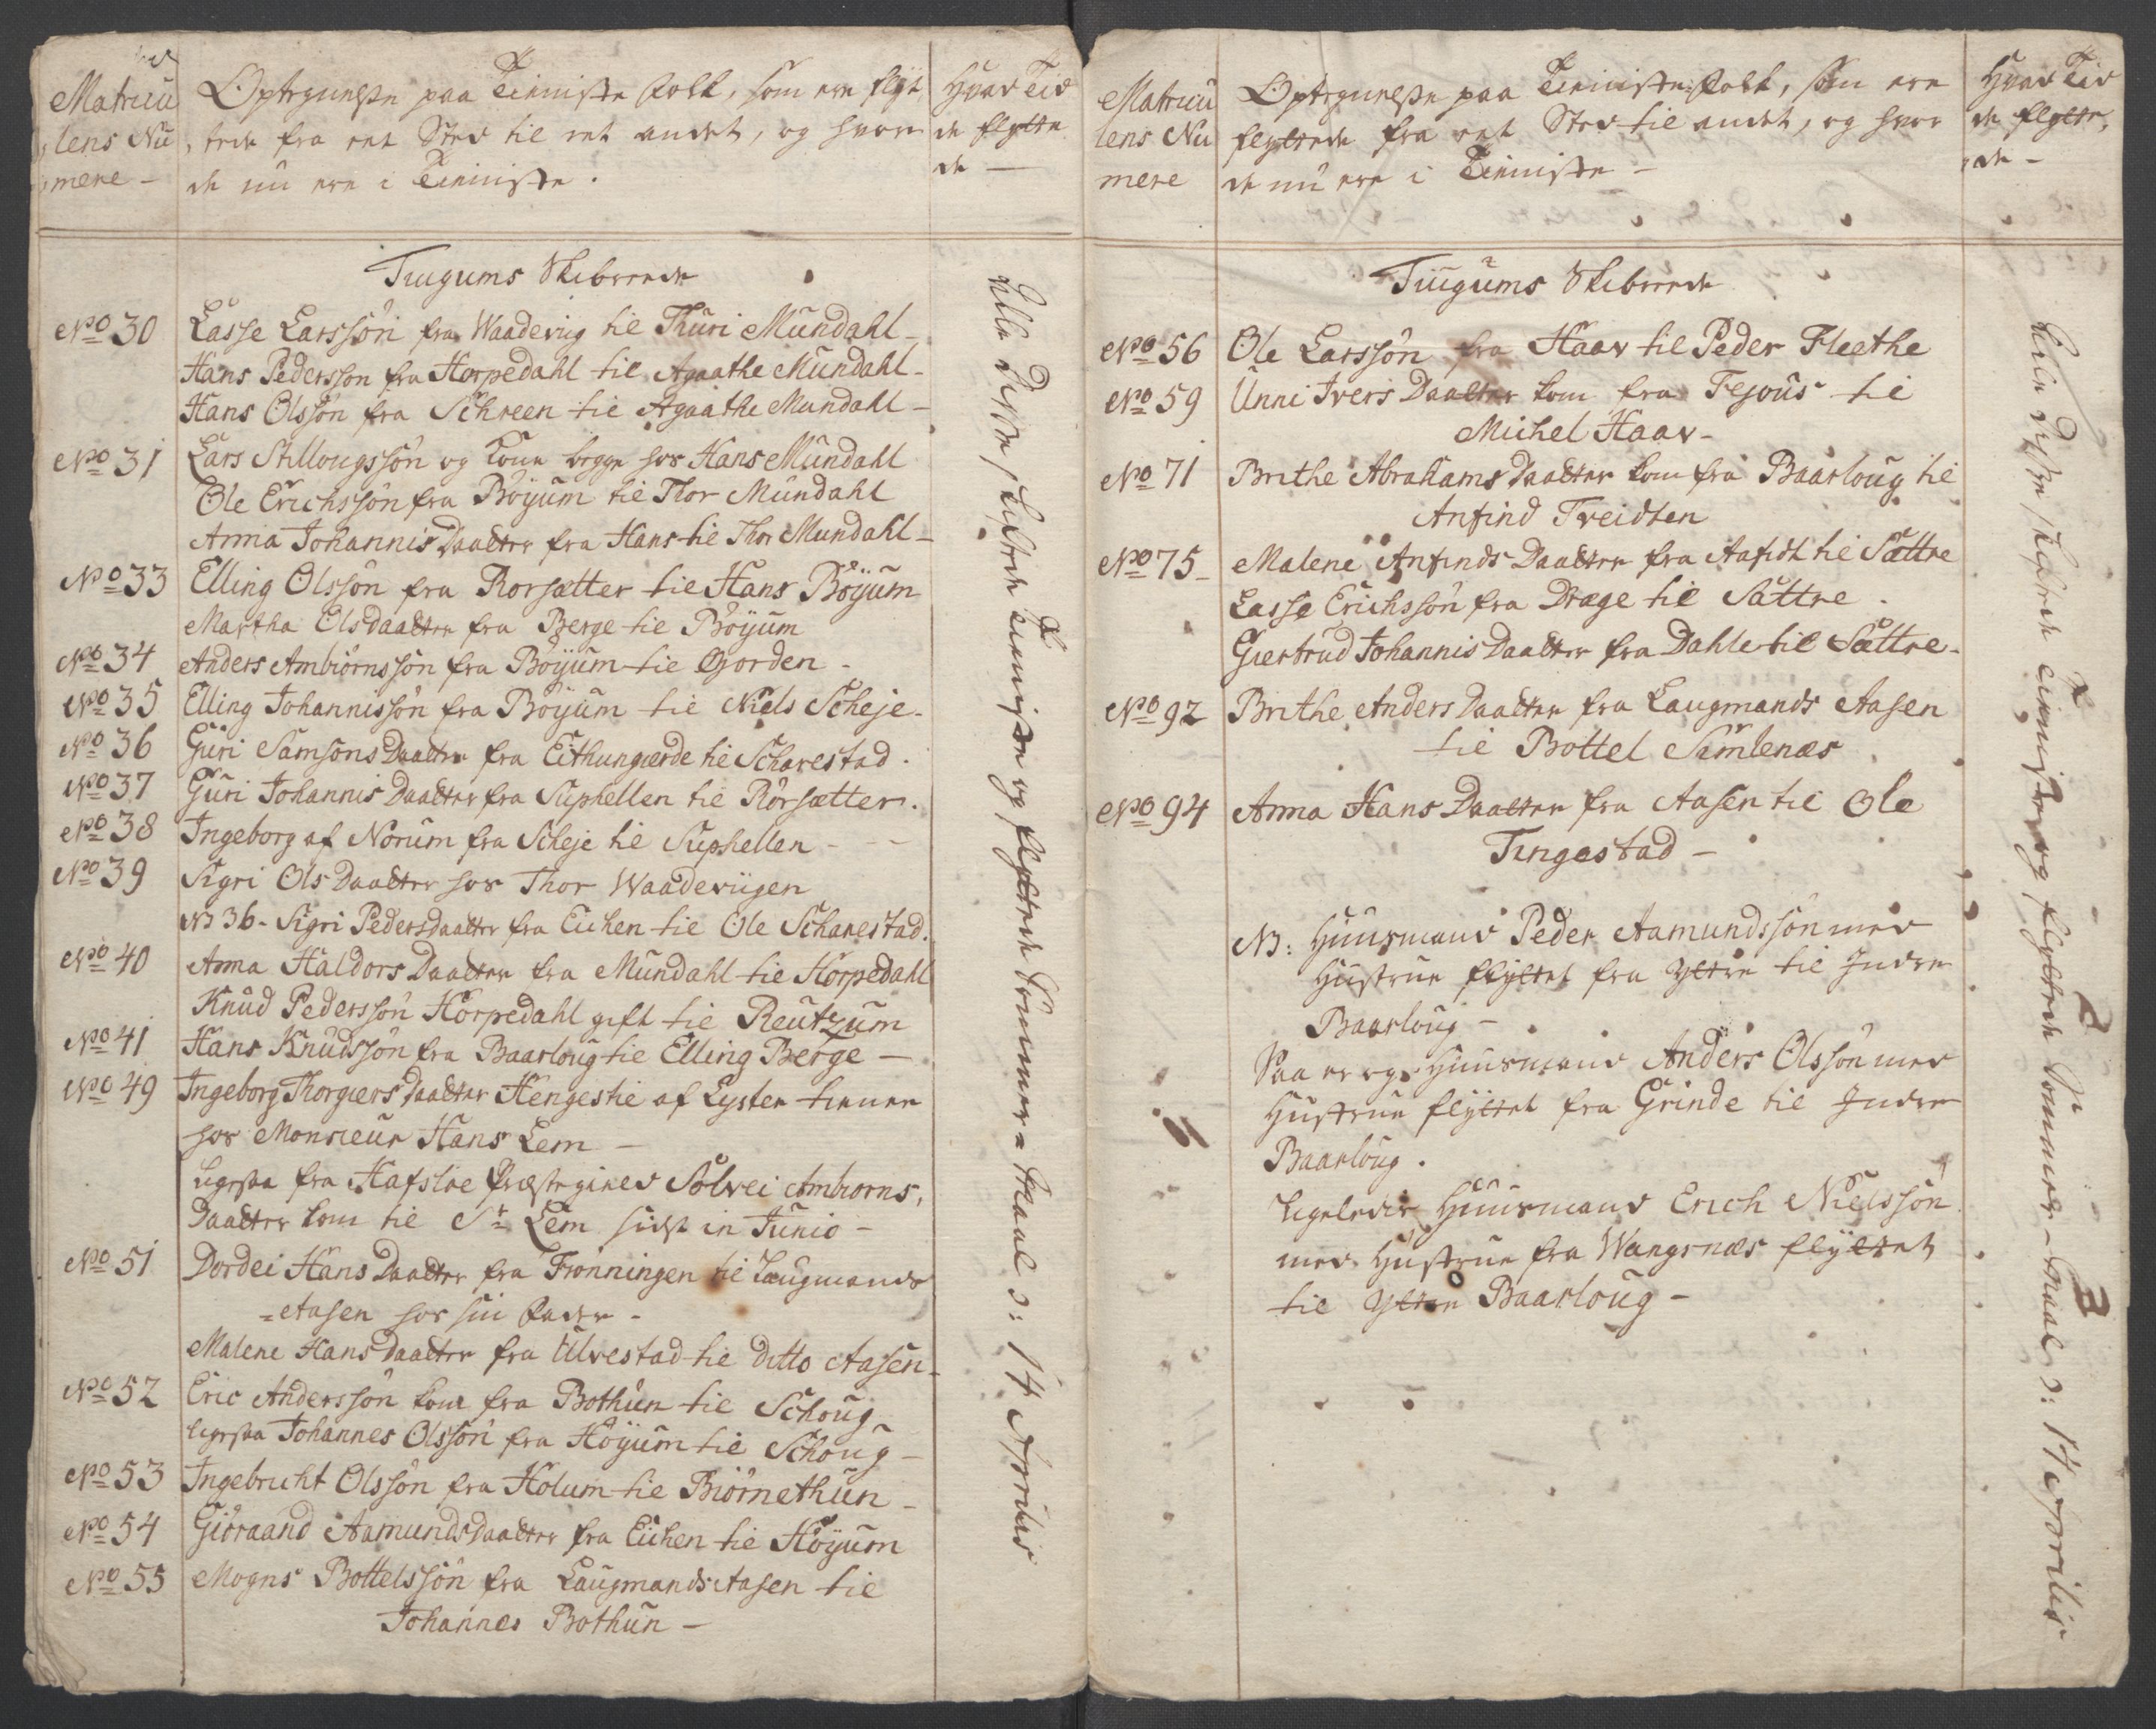 Matricu
lens Nu
mere -
Optegnelse paa Tieniste folk, som ere flyt,
tede fra eet Sted til et andet, og hvor
de nu ere i Tieniste.
Hvad Tid
de flytte
de -
Tiugums Skibrede
No 30 Lasse Larssön fra Waadevig til Thuri Mundahl -
Hans Pedersson fra Horpedahl til Agaathe Mundahl -
Hans Olssön fra Schreen til Agaathe Mundahl -
No 31 Lars Stillougssön og Kone begge hos Hans Mundahl
Ole Erichssön fra Böyum til Thor Mundahl
Anna Johannis Daatter fra Hans til Thor Mundahl -
No 33 Elling Olssön fra Rorsætter til Hans Böyum
Martha Olsdaatter fra Berge til Böyum
No 34 Anders Ambiörnssön fra Böyum til Gjorden -
No 35 Elling Johannissön fra Böyum til Niels Scheje -
No 36 Guri Samsons Daatter fra Eithungierde til Scharestad.
No 37 Guri Johannis Daatter fra Suphellen til Rörsætter.
No 38 Ingeborg af Norum fra Scheje til Suphellen - - -
No 39 Sigri Ols Daatter hos Thor Waadeviigen
N3 36 - Sigri Pedersdaatter fra Eichen til Ole Scharestad.
No 40 Anna Haldors Daatter fra Mundahl til Horpedahl
Knud Pederssön Horpedahl gift til Reutzum
No 41 Hans Knudssön fra Baarloug til Elling Berge -
No 49 Ingeborg Thorgiers Daatter Hengestie af Lyster tiener
hos Monsieur Hans Lem -
Ligesaa fra Hafsloe Præstegield Solvei Ambiorns,
Daatter kom til Sr Lem sidst in Junio -
No 51 Dordei Hans Daatter fra Fronningen til Laugmands
= Aasen hos sin Fader -
Malene Hans Daatter fra Ulvestad til ditto Aasen -
No 52 Eric Anderssön kom fra Bothun til Schoug -
ligesaa Johannes Olssön fra Höyum til Schoug -
No 53 Ingebricht Olssön fra Holum til Biörnethun -
No 54 Giöraand Aamundsdaatter fra Eichen til Höyum
No 55 Mogns Bottelssön fra Laugmands Aasen til
Johannes Bothun -
Alle disse skiftede tieniste og flyttede Sommer = Maal ɔ: 14 Aprilis
Matricu
lens Nu
mere
Optegnelse paa Tieniste folk, som ere
flyttede fra eet Sted til andet, og hvor
de nu ere i Tieniste -
Hvad Tid
de flytte,
de -
Tiugums Skibrede
No 56 Ole Larssön fra Haav til Peder Fleethe
No 59 Unni Ivers Daatter kom fra Fejous til
Michel Haav -
No 71 Brithe Abrahams Daatter kom fra Baarloug til
Anfind Tveidten
No 75 - Malene Anfinds Daatter fra Aafedt til Sættre
Lasse Erichssön fra Dræge til Sættre.
Giertrud Johannis Daatter fra Dahle til Sættre -
No 92 Brithe Anders Daatter fra Laugmands Aasen
til Bottel Simlenæs
No 94 Anna Hans Daatter fra Aasen til Ole
Tingastad -
NB: Huusmand Peder Aamundssön med
Hustrue flyttet fra Yttre til Indre
Baarloug -
Saa er og Huusmand Anders Olssön med
Hustrue flyttet fra Grinde til Indre
Baarloug.
Ligeledes Huusmand Erich Nielssön
med Hustrue fra Wangsnæs flyttet
til Yttre Baarloug -
Alle disse skiftede tieniste og flyttede Sommer - Maal ɔ: 14 Aprilis